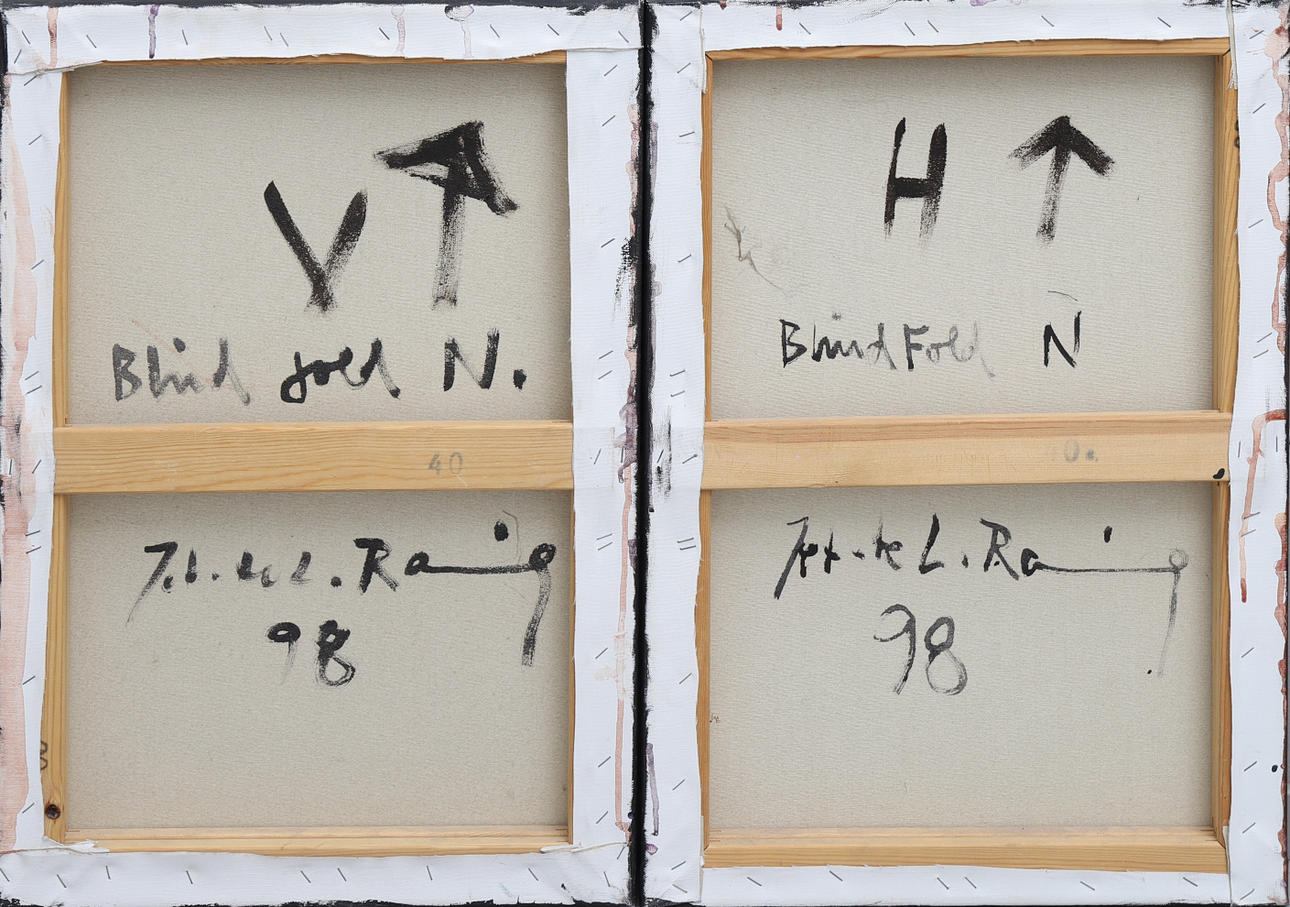 V ↑
Blind fold N.
40
L. Raning
98
H ↑
BlindFold N
L. Raning
98